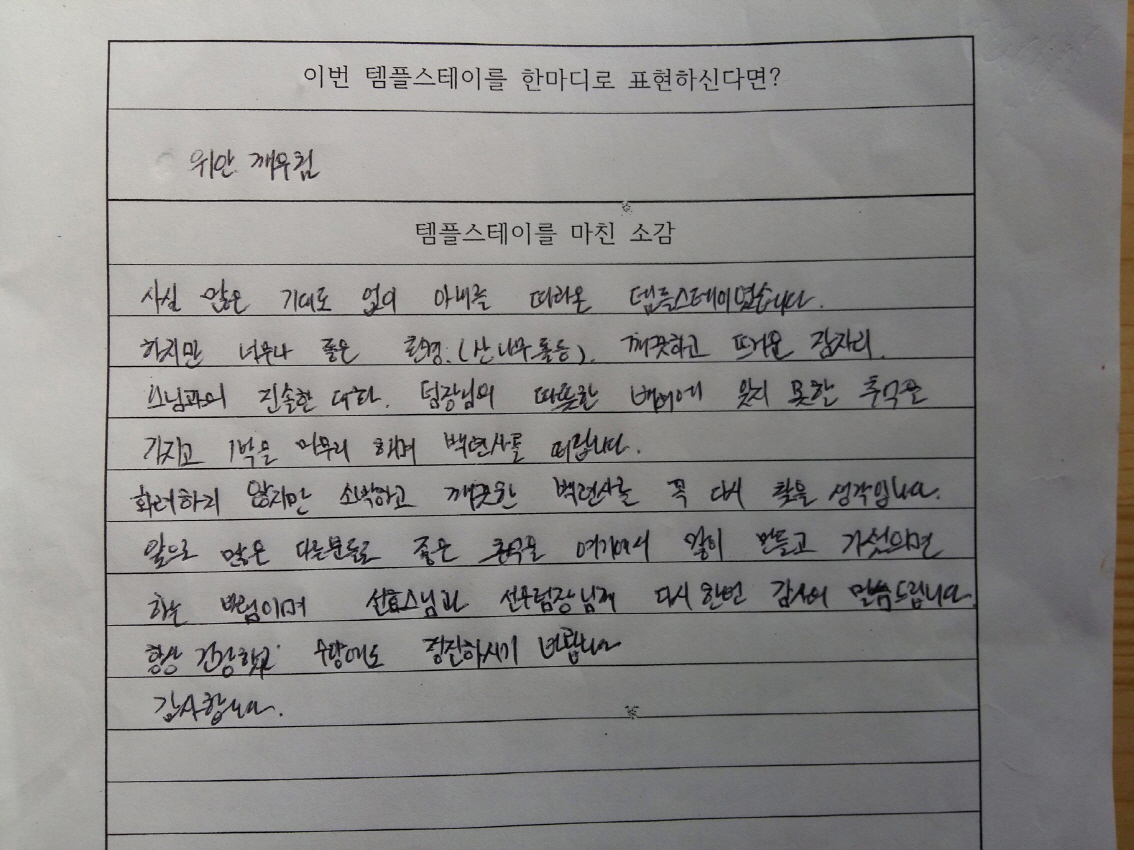 이번 템플스테이를 한마디로 표현하신다면?
위안 깨우침
템플스테이를 마친 소감
사실 많은 기대도 없이 아내를 따라온 템플스테이였습니다.
하지만 너무나 좋은 환경.(산 나무 돌등). 깨끗하고 뜨거운 잠자리.
스님과의 진솔한 대화. 팀장님의 따뜻한 배려에 잊지 못한 추억을
가지고 1박을 마무리 하며 백련사를 떠납니다.
화려하지 않지만 소박하고 깨끗한 백련사를 꼭 다시 찾을 생각입니다.
앞으로 많은 다른분들도 좋은 추억을 여기에서 많이 만들고 가셨으면
하는 바램이며 선효스님과 팀장님께 다시 한번 감사의 말씀드립니다.
항상 건강하시고 수향에도 정진하시기 바랍니다
감사합니다.